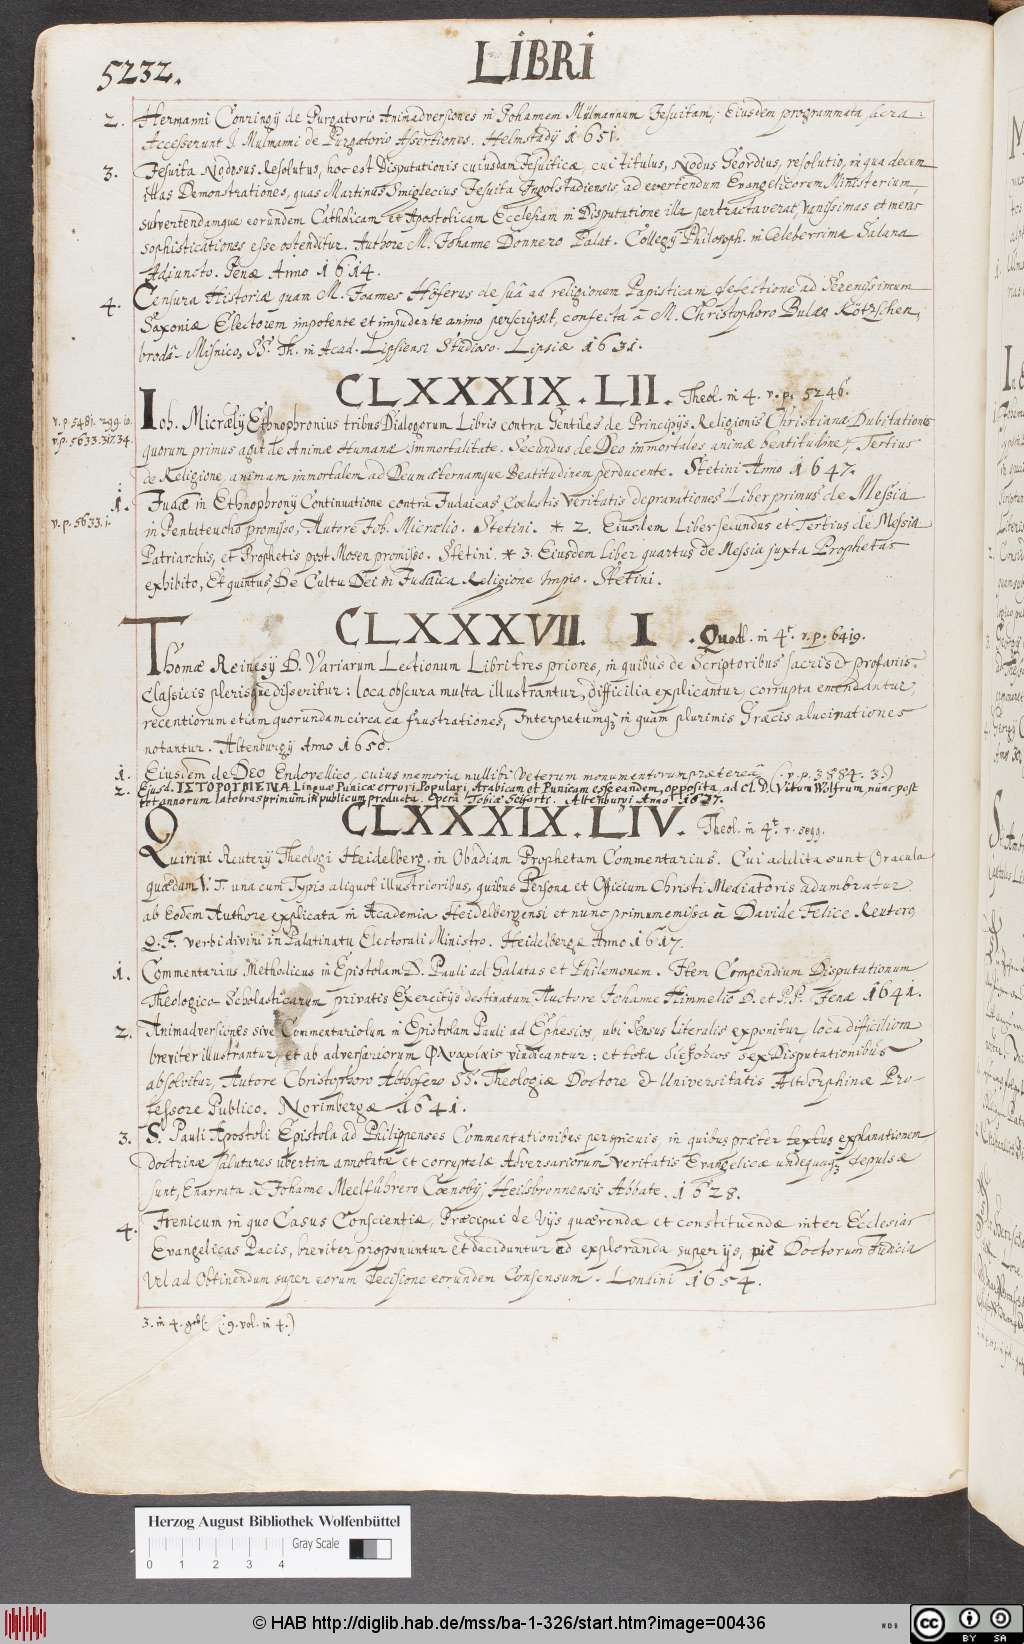 5232.
LIBRI
2. Hermanni Conringij de Purgatorio Animadversiones in Johannem Mulmannum Jesuitam, Eiusdem programmata sacra.
Accesserunt J. Mulmanni de Purgatorio Assertiones. Helmstadij 1651.
3. Jesuita Nodosus Resolutus, hoc est Disputationis cuiusdam Jesuiticæ, cui titulus, Nodus Gordius, resolutio, in qua decem
illas Demonstrationes, quas Martinus Smiglecius Jesuita Ingolstadiensis, ad evertendum Evangelicorem Ministerium,
subvertendamque eorundem Catholicam et Apostolicam Ecclesiam in Disputatione illa pertractaverat, vanissimas et meras
sophisticationes esse ostenditur. Authore M. Johanne Donnero Palat. Collegij Philosoph. in Celeberrima Salana
Adiuncto. Jenæ Anno 1614.
4. Censura Historiæ quam M. Joannes Höferus de suâ ad religionem Papisticam defectione ad Serenissimum
Saxoniæ Electorem impotente et impudente animo perscripsit, confecta à M. Christophoro Bulæo Kötzschen,
brodâ-Misnico, SS. Th. in Acad. Lipsiensi Studioso. Lipsiæ 1631.
CLXXXIX. LII. Theol. in 4. v. p. 5246.
v. p. 5481. 299. 10.
v. p. 5633. 317. 34.
Joh. Micrælij Ethnophronius tribus Dialogorum Libris contra Gentiles de Principijs Religionis Christianæ Dubitationes
quorum primus agit de Animæ Humanæ Immortalitate. Secundus de Deo immortales animæ beatitudine, Tertius
de Religione, animam immortalem ad Deum æternamque Beatitudinem perducente. Stetini Anno 1647.
1. Judæ in Ethnophronij Continuatione contra Judaicas Coelestis Veritatis depravationes Liber primus de Messia
v. p. 5633. 1.
in Pentateucho promisso, Autore Joh. Micrælio. Stetini. * 2. Eiusdem Liber secundus et Tertius de Messia
Patriarchis, et Prophetis post Mosen promisso. Stetini * 3. Eiusdem Liber quartus de Messia juxta Prophetas
exhibito, Et quintus, De Cultu Dei in Judaica Religione Impio. Stetini.
CLXXXVII. I. Quodl. in 4. v. p. 6419.
Thomæ Reinesij D. Variarum Lectionum Libri tres priores, in quibus de Scriptoribus sacris & profanis.
Classicis plerisque disseritur: loca obscura multa illustrantur, difficilia explicantur, corrupta emendantur,
recentiorum etiam quorundam circa ea frustrationes, Interpretumq; in quam plurimis Græcis alucinationes
notantur. Altenburgij Anno 1650.
1. Eiusdem de Deo Endovellico, cuius memoria nullibi Veterum monumentorum præterea (:v. p. 3884. 3.)
2. Ejusd. ΙΣΤΟΡΟΥΜΕΝΑ Linguæ Punicæ errori Populari, Arabicam et Punicam esse eandem, opposita, ad Cl. D. Vitum Wolfrum, nunc post
tot annorum latebras primùm in publicum producta. Operâ Tobiæ Seiferti. Altenburgi Anno 1637.
CLXXXIX. LIV. Theol. in 4. v. 5899.
Quirini Reuterj Theologi Heidelberg. in Obadiam Prophetam Commentarius. Cui addita sunt Oracula
quædam V. T. una cum Typis aliquot illustrioribus, quibus Persona et Officium Christi Mediatoris adumbratur
ab Eodem Authore explicata in Academia Heidelbergensi et nunc primum emissa à Davide Felice Reutero
Q. F. verbi divini in Palatinatu Electorali Ministro. Heidelbergæ Anno 1617.
1. Commentarius Methodicus in Epistolam D. Pauli ad Galatas et Philemonem. Item Compendium Disputationum
Theologico-Scholasticarum privatis Exercitijs destinatum Auctore Johanne Himmelio D. et P. P. Jenæ 1641.
2. Animadversiones sive Commentariolum in Epistolam Pauli ad Ephesios, ubi Sensus Literalis exponitur, loca difficiliora
breviter illustrantur, et ab adversariorum Φλυαρίαις vindicantur: et tota διέξοδος sex Disputationibus
absolvitur, Autore Christophoro Althofero SS. Theologiæ Doctore & Universitatis Altdorphinæ Pro-
fessore Publico. Norimbergæ 1641.
3. S. Pauli Apostoli Epistola ad Philippenses Commentationibus perspicuis, in quibus præter textus explanationem
doctrinæ salutares ubertim annotatæ et corruptelæ Adversariorum Veritatis Evangelicæ undequaq; depulsæ
sunt, Enarrata à Johanne Meelführero Coenobij Heilsbronnensis Abbate. 1628.
4. Irenicum in quo Casus Conscientiæ, Præcipui de Vijs quærendæ et constituendæ inter Ecclesias
Evangelicas Pacis, breviter proponuntur et deciduntur ad exploranda super ijs, piè Doctorum Iudicia
Vel ad Obtinendum super eorum decisione eorundem Consensum. Londini 1654.
3. in 4. (:9. vol. in 4.)
Herzog August Bibliothek Wolfenbüttel
Gray Scale
0 1 2 3 4
© HAB http://diglib.hab.de/mss/ba-1-326/start.htm?image=00436
WDB
cc BY SA